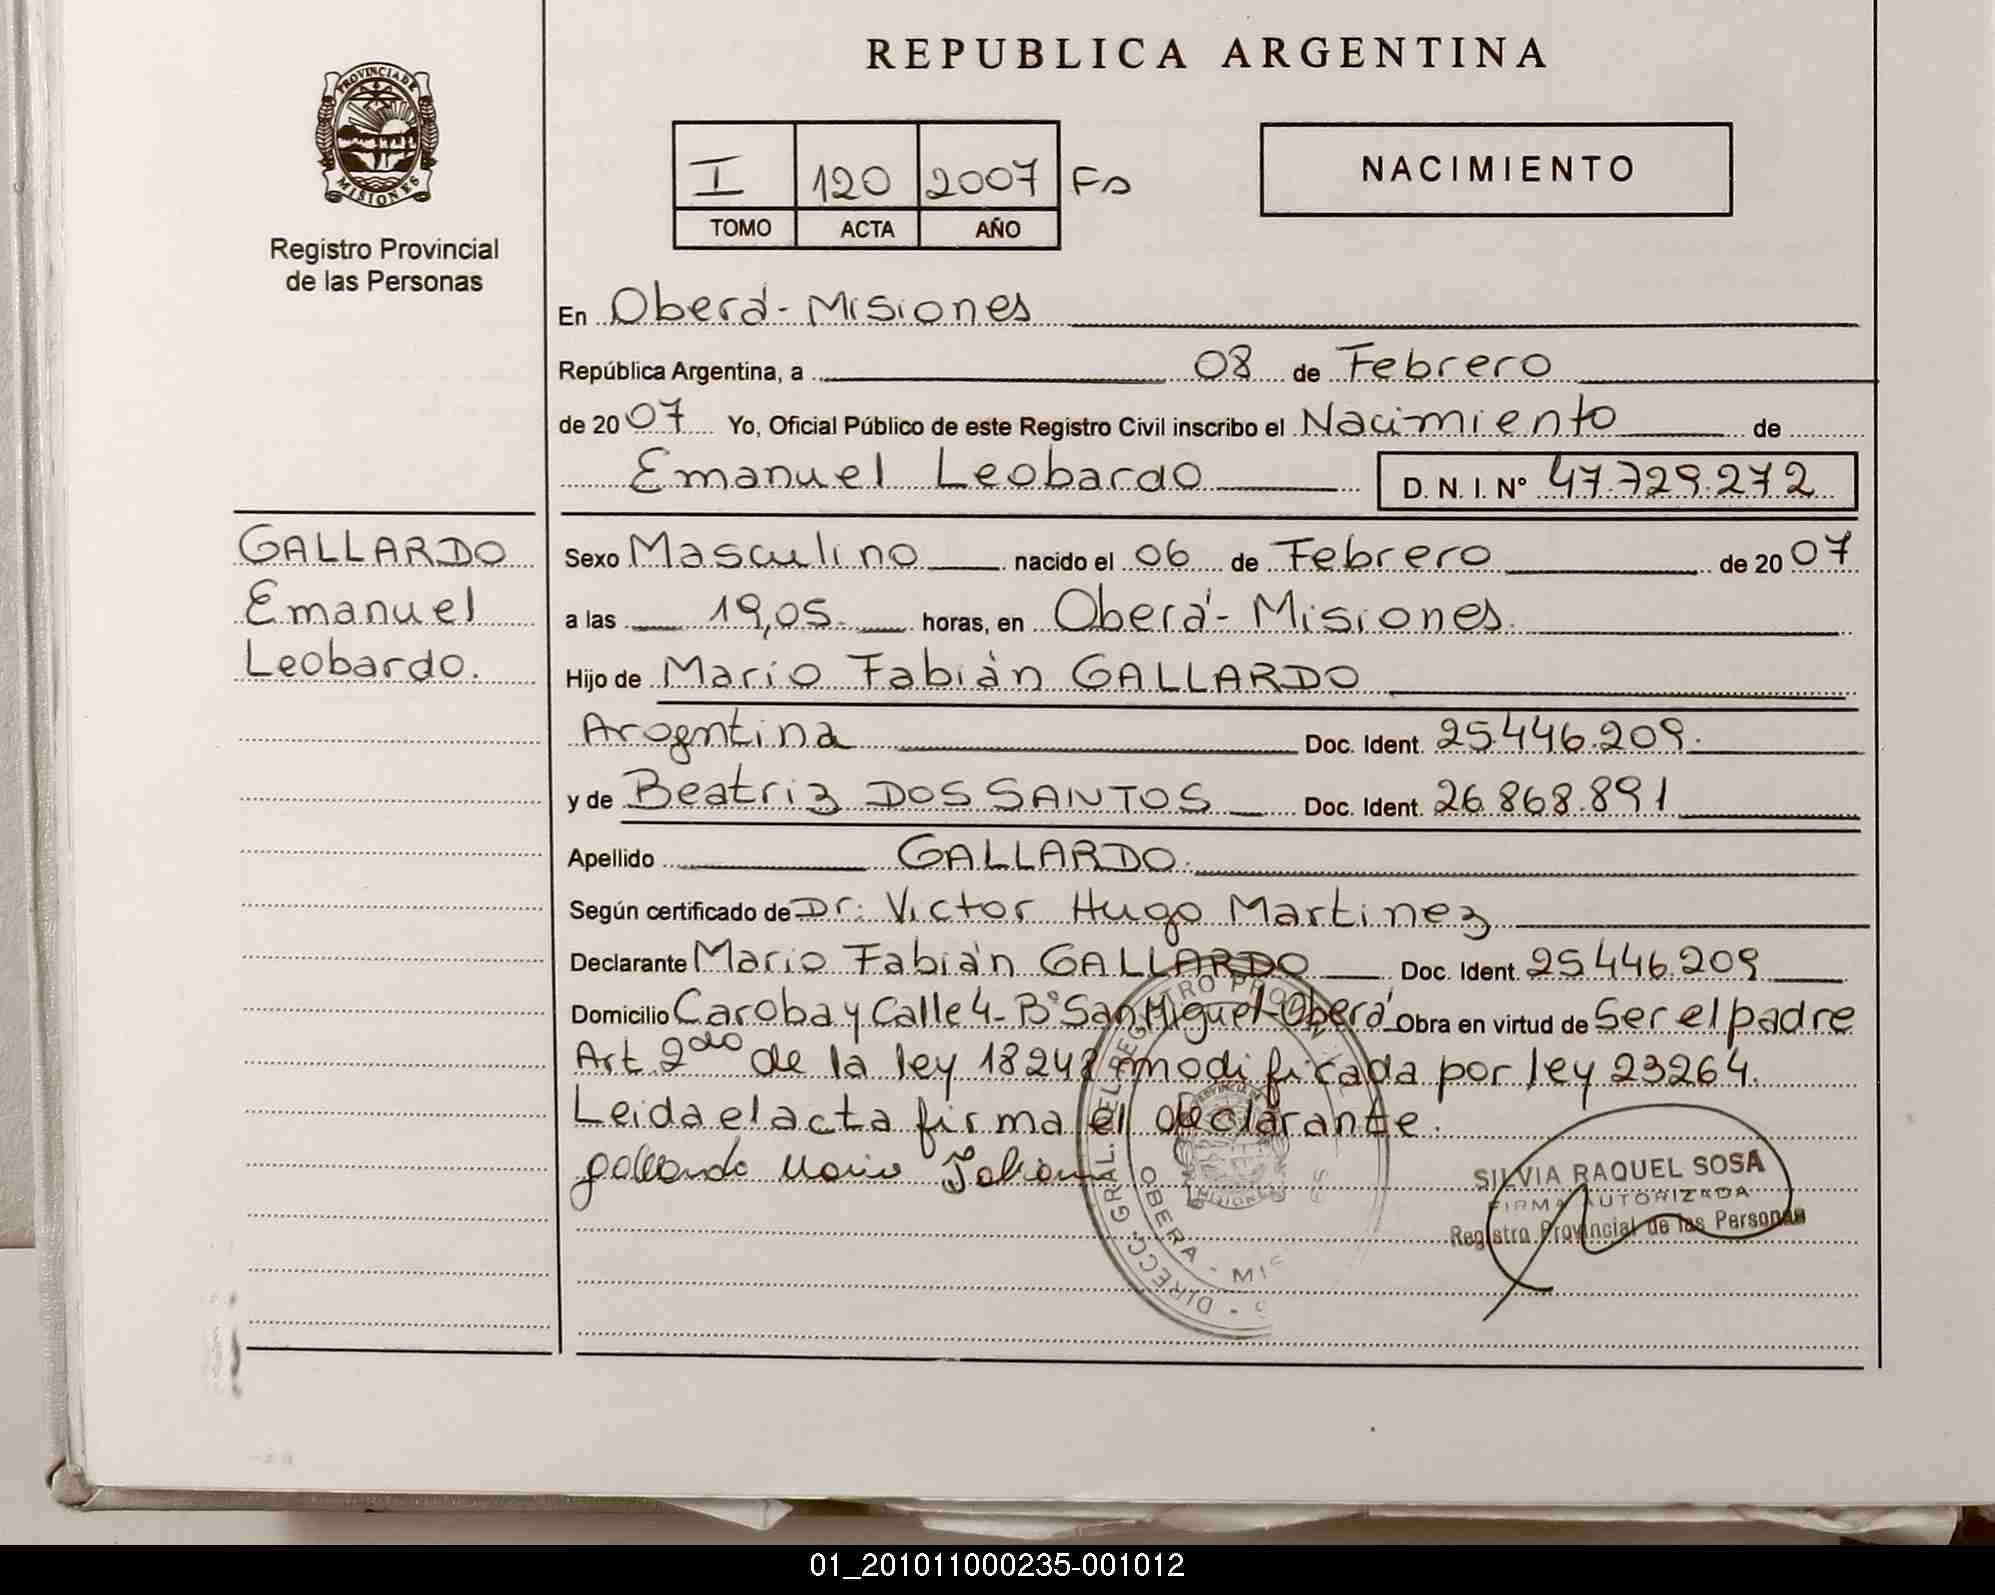 REPUBLICA ARGENTINA
PROVINCIA DE MISIONES
Registro Provincial
de las Personas
I 120 2007 Fs
TOMO ACTA AÑO
NACIMIENTO
En Oberá - Misiones
República Argentina, a 08 de Febrero
de 2007 Yo, Oficial Público de este Registro Civil inscribo el Nacimiento de
Emanuel Leobardo D. N. I. N° 47.729.272
GALLARDO
Emanuel
Leobardo.
Sexo Masculino nacido el 06 de Febrero de 2007
a las 19,05. horas, en Oberá - Misiones.
Hijo de Mario Fabián GALLARDO
Arogntina Doc. Ident. 25.446.209.
y de Beatriz DOS SANTOS Doc. Ident. 26.868.891
Apellido GALLARDO.
Según certificado de Dr. Victor Hugo Martinez
Declarante Mario Fabián GALLARDO Doc. Ident. 25.446.209
Domicilio Caroba y Calle 4 - B° San Miguel - Oberá Obra en virtud de Ser el padre
Art. 2do de la ley 18248 modificada por ley 23264.
Leida el acta firma el declarante.
gallardo Mario Fabian
DIRECC. GRAL. EL REGISTRO PROV
OBERA - MIS
PROVINCIA DE MISIONES
SILVIA RAQUEL SOSA
FIRMA AUTORIZADA
Registro Provincial de las Personas
01_201011000235-001012